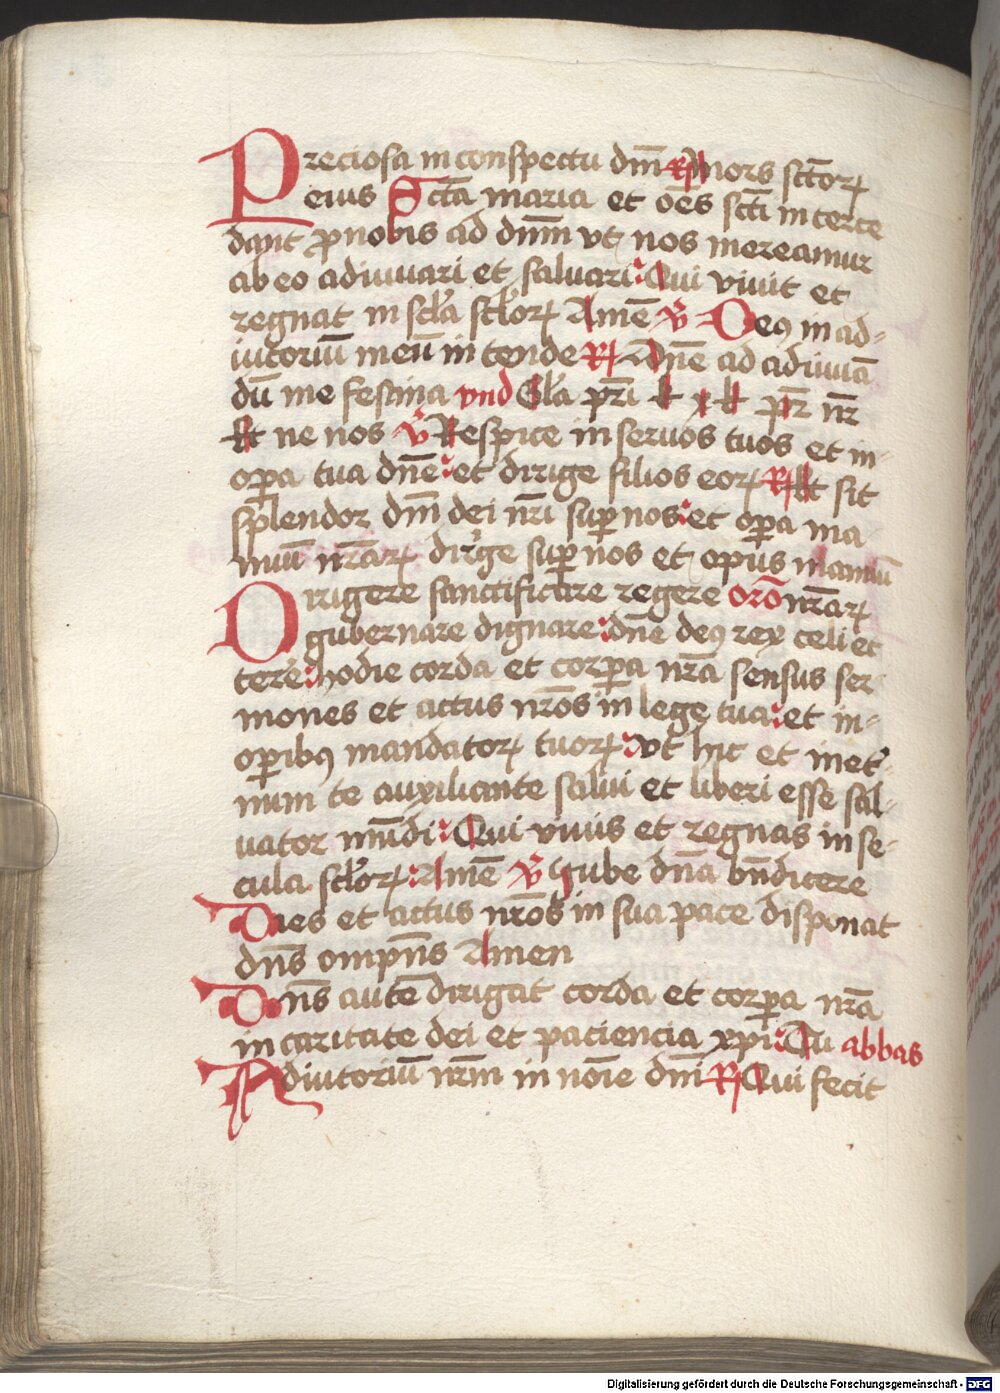 Preciosa in conspectu dm̄ R Mors sctōrꝝ
eius Sctā maria et oēs scti interce
dant ꝓ nobis ad dnm̄ vt nos mereamur
ab eo adiuuari et saluari Qui viuit et
regnat in scl̄a scl̄orꝝ Amē V Deꝰ in ad-
iutoriū meū in tende R Dn̄e ad adiuuā
dū me festina vnd Gl̄a pr̄i k x k pr̄ nr̄
Et ne nos V Respice in seruos tuos et in-
oꝑa tua dn̄e et dirige filios eorꝝ R Et sit
splendor dm̄ dei nr̄i suꝑ nos et oꝑa ma
nuū nr̄arꝝ dirige suꝑ nos et opus manuū
Dirigere sanctificare regere orō nr̄arꝝ
gubernare dignare dn̄e deꝰ rex celi et
tere hodie corda et corꝑa nr̄a sensus ser
mones et actus nr̄os in lege tua et in-
oꝑibꝰ mandatorꝝ tuorꝝ vt hic et in et̓
num te auxiliante salui et liberi esse sal-
uator mūdi Qui viuis et regnas in se-
cula scl̄orꝝ Amē V Iube dn̄a bn̄dicere
Dies et actus nr̄os in sua pace disponat
dn̄s omp̄ns Amen
Dn̄s autē dirigat corda et corꝑa nr̄a
in caritate dei et paciencia xpi Tu abbas
Adiutoriū nr̄m in noīe dm̄ R Qui fecit
Digitalisierung gefördert durch die Deutsche Forschungsgemeinschaft - DFG